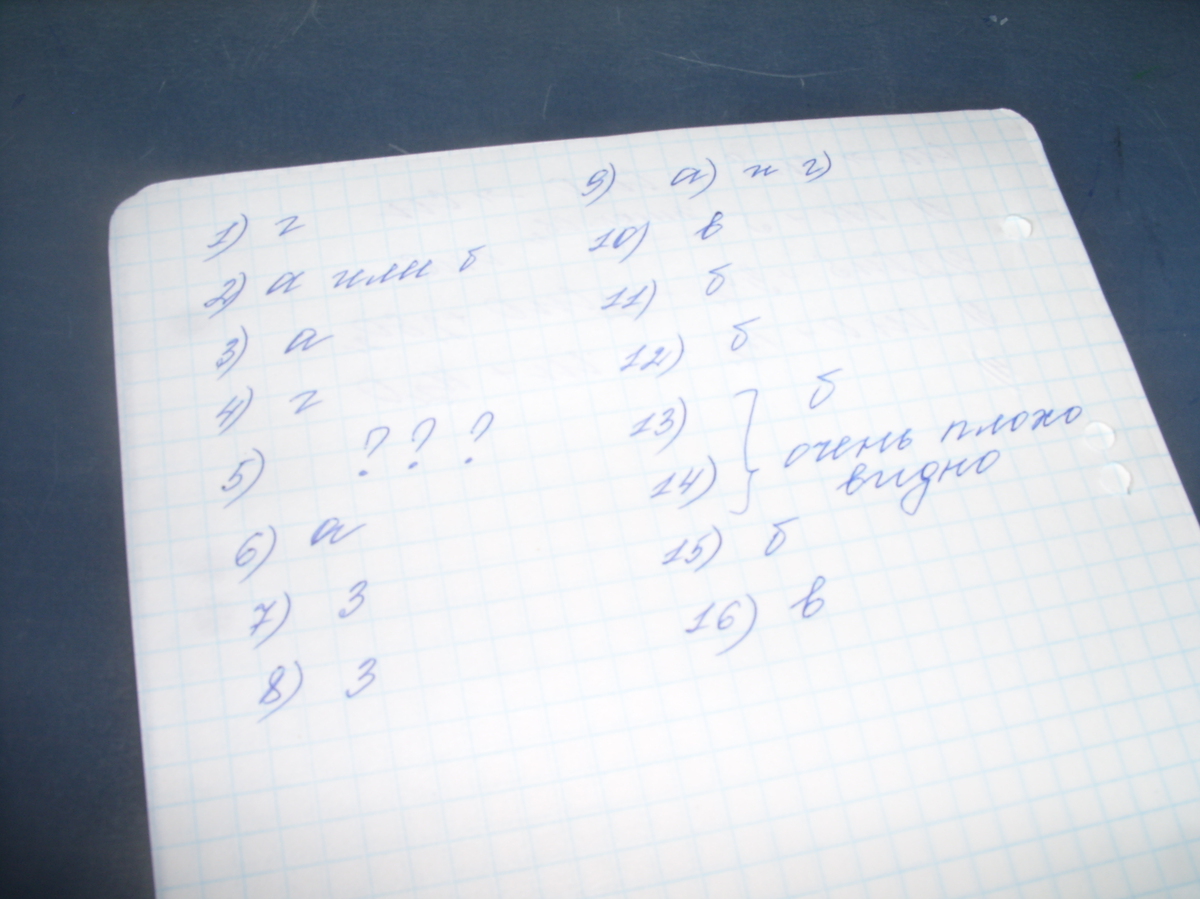 1) г
2) а или б
3) а
4) г
5) ? ? ?
6) а
7) 3
8) 3
9) а) и г)
10) в
11) б
12) б
13) б
14) очень плохо
видно
15) б
16) в